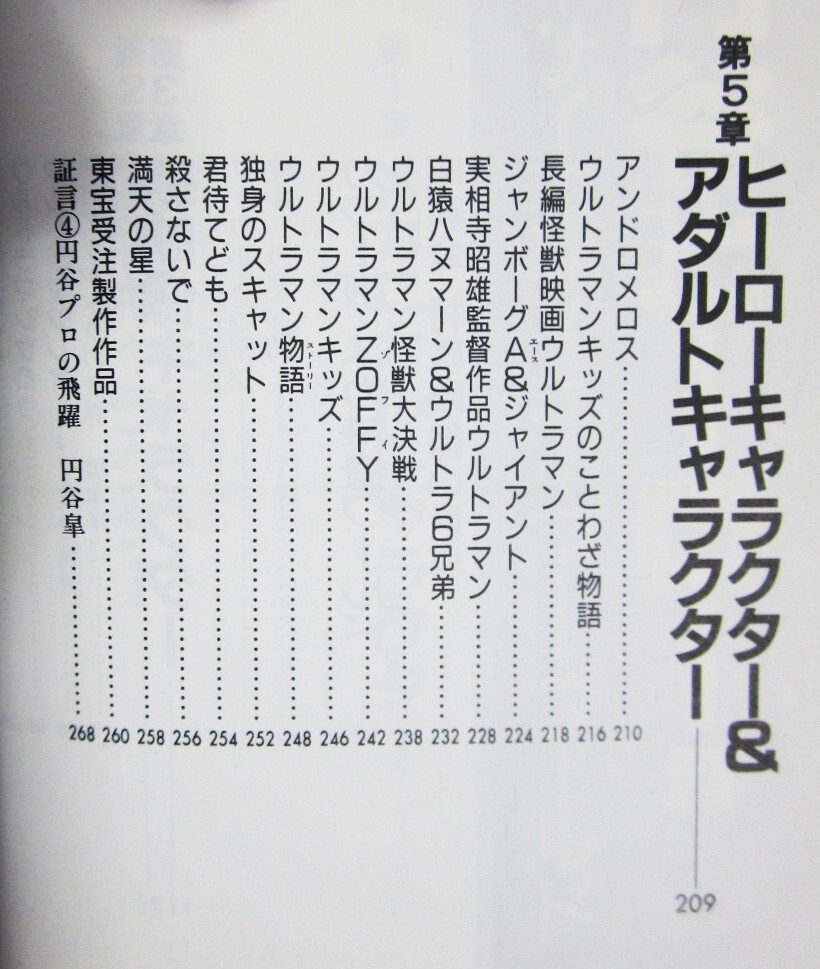 第5章
ヒーローキャラクター&
アダルトキャラクター 209
アンドロメロス 210
ウルトラマンキッズのことわざ物語 216
長編怪獣映画ウルトラマン 218
ジャンボーグA&ジャイアント 224
エース
実相寺昭雄監督作品ウルトラマン 228
白猿ハヌマーン&ウルトラ6兄弟 232
ウルトラマン怪獣大決戦 238
ウルトラマンZOFFY 242
ゾフィ
ウルトラマンキッズ 246
ウルトラマン物語 248
ストーリー
独身のスキャット 252
君待てども 254
殺さないで 256
満天の星 258
東宝受注製作作品 260
証言④円谷プロの飛躍 円谷皐 268